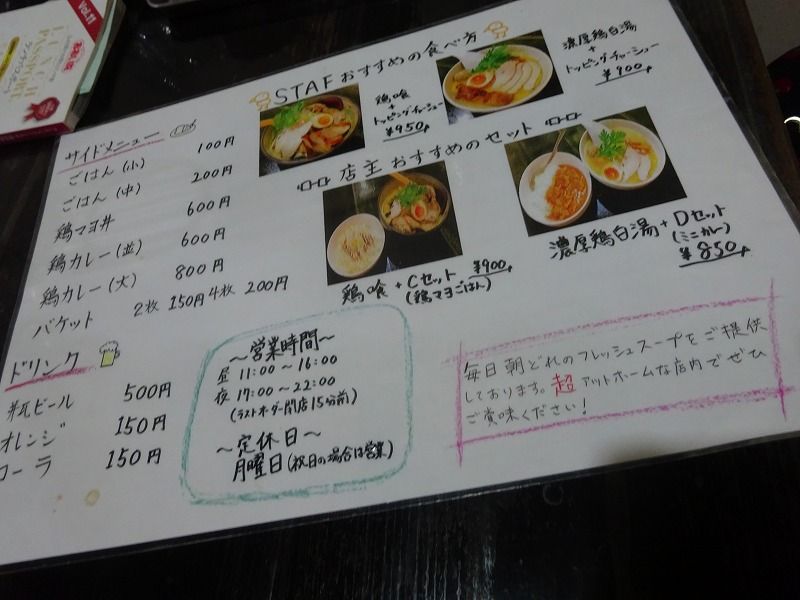 Vol.11
LUNCH
PASSPORT
STAFおすすめの食べ方
鶏喰
+
トッピングチャーシュー
¥950
濃厚鶏白湯
+
トッピングチャーシュー
¥900
店主おすすめのセット
鶏喰+Cセット ¥900
(鶏マヨごはん)
濃厚鶏白湯+Dセット
(ミニカレー)
¥850
サイドメニュー
ごはん(小) 100円
ごはん(中) 200円
鶏マヨ丼 600円
鶏カレー(並) 600円
鶏カレー(大) 800円
バケット 2枚 150円 4枚 200円
ドリンク
瓶ビール 500円
オレンジ 150円
コーラ 150円
～営業時間～
昼 11:00～16:00
夜 17:00～22:00
(ラストオーダー閉店15分前)
～定休日～
月曜日(祝日の場合は営業)
毎日朝どれのフレッシュスープをご提供
しております。超アットホームな店内でぜひ
ご賞味ください!